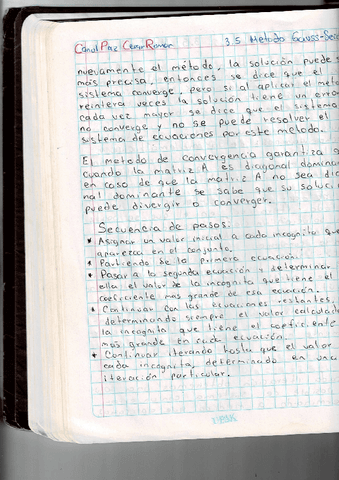 Canul Paz Cesar Roman 3.5 Metodo Gauss-Sei
nuevamente el método, la solución puede s
más precisa, entonces se dice que el
sistema converge, pero si al aplicar el méto
reintera veces la solucion tiene un erro
cada vez mayor se dice que el sistema
no converge y no se puede resolver el
sistema de ecuaciones por este metodo.
El metodo de convergencia garantiza s
cuando la matriz A es diagonal domina
en caso de que la matriz A no sea dia
nal dominante se sabe que su soluci
puede divergir o converger.
Secuencia de pasos:
* Asignar un valor inicial a cada incognita que
aparezca en el conjunto.
* Partiendo de la primera ecuación.
* Pasar a la segunda ecuación y determinar
ella el valor de la incognita que tiene el
coeficiente mas grande de esa ecuación.
* Continuar con las ecuaciones restantes,
determinando siempre el valor calculad
la incognita que tiene el coeficiente
más grande en cada ecuación.
* Continuar iterando hasta que el valor
cada incognita, determinado en una
iteración particular.